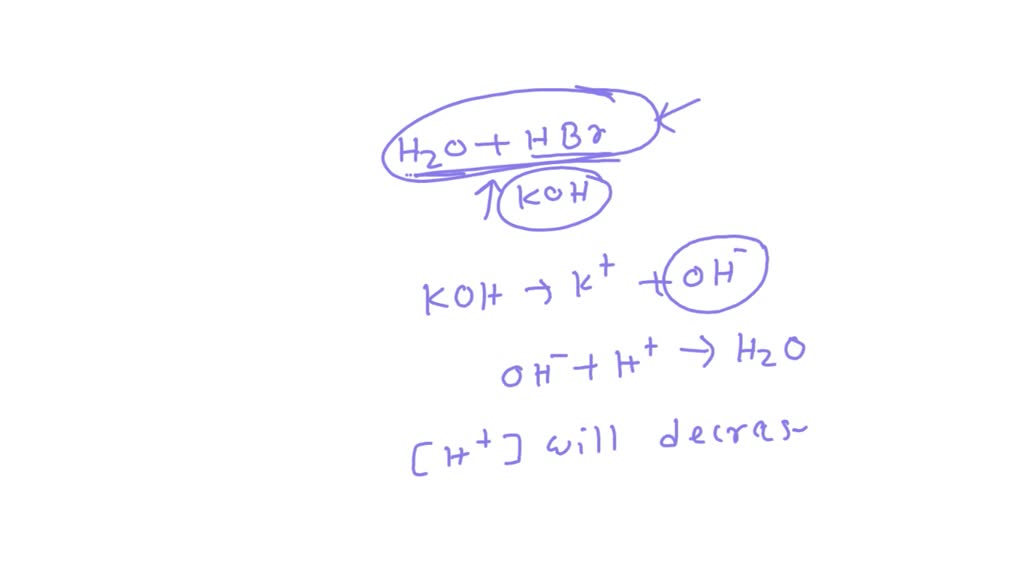 H₂O + HBr
KOH
KOH → K⁺ + OH⁻
OH⁻ + H⁺ → H₂O
[H⁺] will decras